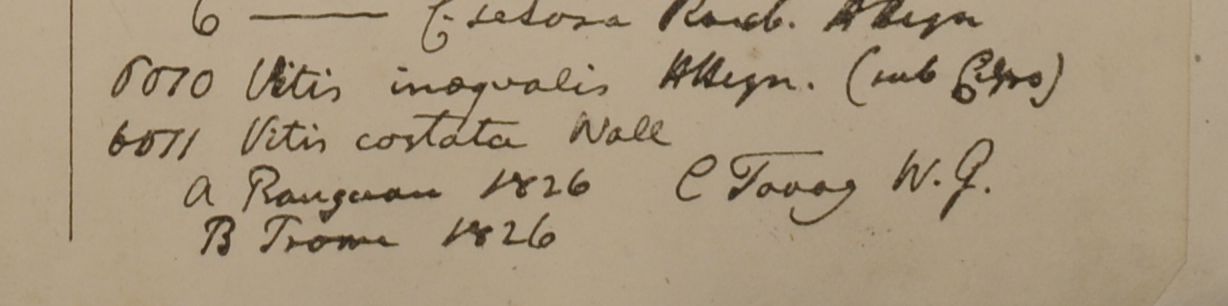 6 —— C. setosa Roxb. HHeyn
6010 Vitis inæqualis HHeyn. (sub Cisso)
6011 Vitis costata Wall
A Rangoan 1826 C Tavoy W.G.
B Prome 1826